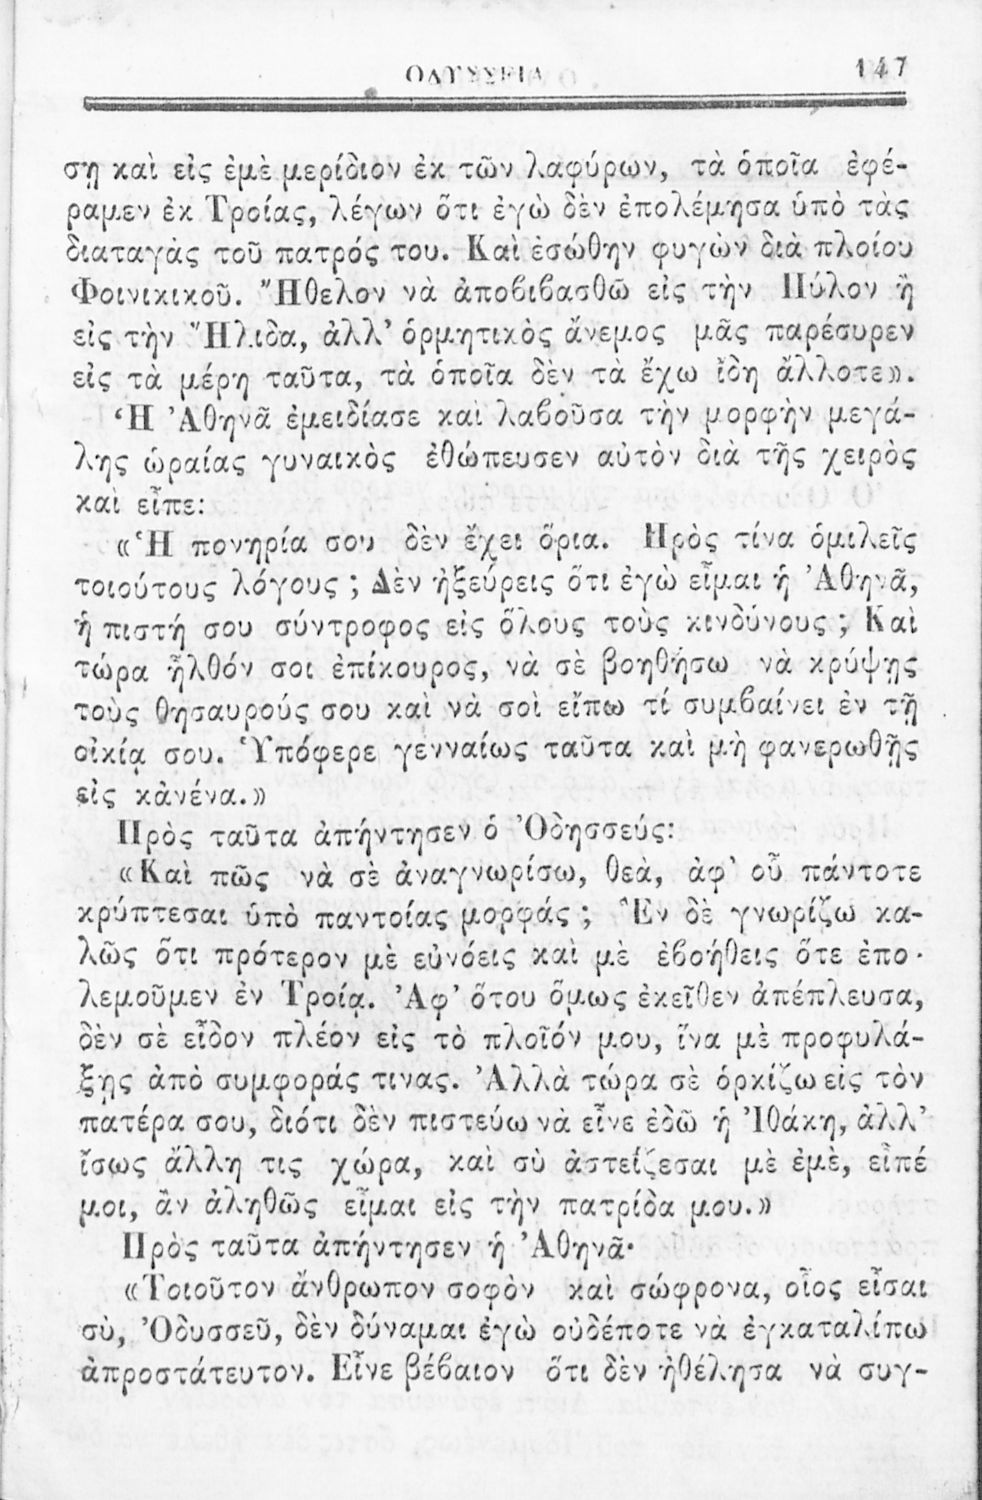 ΟΔΥΣΣΕΙΑ 147
ση καὶ εἰς ἐμὲ μερίδιον ἐκ τῶν λαφύρων, τὰ ὁποῖα ἐφέ-
ραμεν ἐκ Τροίας, λέγων ὅτι ἐγὼ δὲν ἐπολέμησα ὑπὸ τὰς
διαταγὰς τοῦ πατρός του. Καὶ ἐσώθην φυγὼν διὰ πλοίου
Φοινικικοῦ. Ἤθελον νὰ ἀποβιβασθῶ εἰς τὴν Πύλον ἢ
εἰς τὴν Ἤλιδα, ἀλλ’ ὁρμητικὸς ἄνεμος μᾶς παρέσυρεν
εἰς τὰ μέρη ταῦτα, τὰ ὁποῖα δὲν τὰ ἔχω ἴδη ἄλλοτε».
Ἡ Ἀθηνᾶ ἐμειδίασε καὶ λαβοῦσα τὴν μορφὴν μεγά-
λης ὡραίας γυναικὸς ἐθώπευσεν αὐτὸν διὰ τῆς χειρὸς
καὶ εἶπε:
«Ἡ πονηρία σου δὲν ἔχει ὅρια. Πρὸς τίνα ὁμιλεῖς
τοιούτους λόγους ; Δὲν ἠξεύρεις ὅτι ἐγὼ εἶμαι ἡ Ἀθηνᾶ,
ἡ πιστή σου σύντροφος εἰς ὅλους τοὺς κινδύνους ; Καὶ
τώρα ἦλθόν σοι ἐπίκουρος, νὰ σὲ βοηθήσω νὰ κρύψῃς
τοὺς θησαυρούς σου καὶ νὰ σοὶ εἴπω τί συμβαίνει ἐν τῇ
οἰκίᾳ σου. Ὑπόφερε γενναίως ταῦτα καὶ μὴ φανερωθῇς
εἰς κἀνένα.»
Πρὸς ταῦτα ἀπήντησεν ὁ Ὀδησσεύς:
«Καὶ πῶς νὰ σὲ ἀναγνωρίσω, θεὰ, ἀφ’ οὗ πάντοτε
κρύπτεσαι ὑπὸ παντοίας μορφάς ; Ἓν δὲ γνωρίζω κα-
λῶς ὅτι πρότερον μὲ εὐνόεις καὶ μὲ ἐβοήθεις ὅτε ἐπο-
λεμοῦμεν ἐν Τροίᾳ. Ἀφ’ ὅτου ὅμως ἐκεῖθεν ἀπέπλευσα,
δὲν σὲ εἶδον πλέον εἰς τὸ πλοῖόν μου, ἵνα μὲ προφυλά-
ξῃς ἀπὸ συμφοράς τινας. Ἀλλὰ τώρα σὲ ὁρκίζω εἰς τὸν
πατέρα σου, διότι δὲν πιστεύω νὰ εἶνε ἐδῶ ἡ Ἰθάκη, ἀλλ’
ἴσως ἄλλη τις χώρα, καὶ σὺ ἀστείζεσαι μὲ ἐμὲ, εἰπέ
μοι, ἂν ἀληθῶς εἶμαι εἰς τὴν πατρίδα μου.»
Πρὸς ταῦτα ἀπήντησεν ἡ Ἀθηνᾶ·
«Τοιοῦτον ἄνθρωπον σοφὸν καὶ σώφρονα, οἷος εἶσαι
σὺ, Ὀδυσσεῦ, δὲν δύναμαι ἐγὼ οὐδέποτε νὰ ἐγκαταλίπω
ἀπροστάτευτον. Εἶνε βέβαιον ὅτι δὲν ἠθέλησα νὰ συγ-